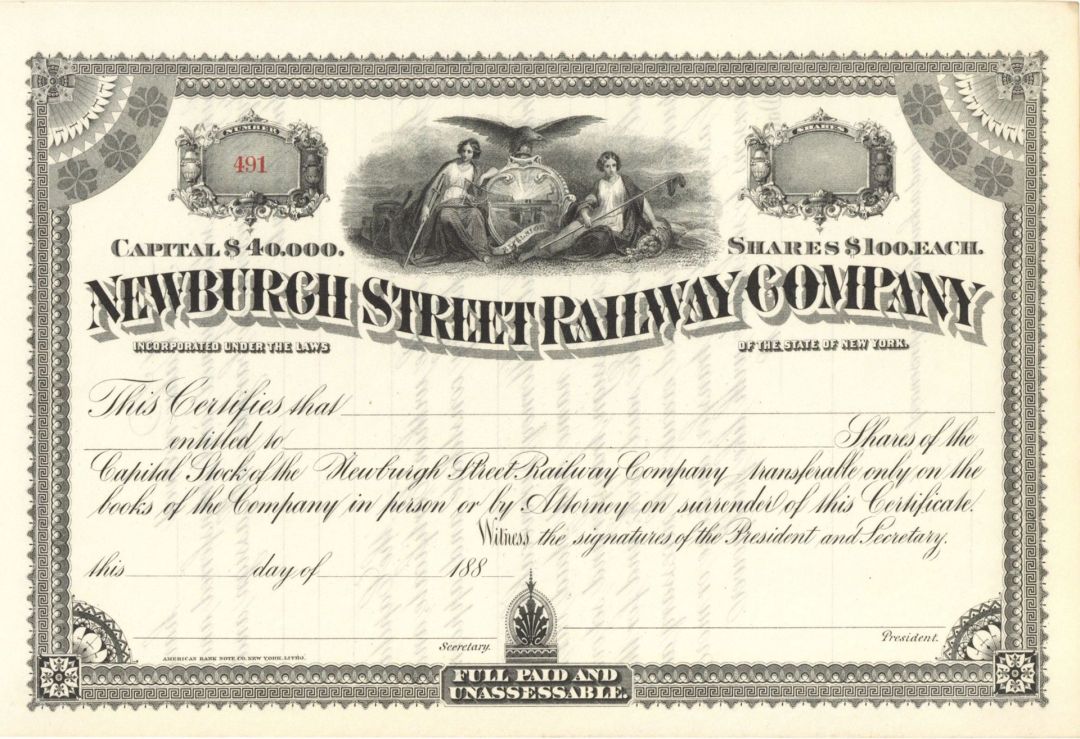 NUMBER
491
SHARES
EXCELSIOR
CAPITAL $40.000.
SHARES $100.EACH.
NEWBURGH STREET RAILWAY COMPANY
INCORPORATED UNDER THE LAWS OF THE STATE OF NEW YORK.
This Certifies that
entitled to Shares of the
Capital Stock of the Newburgh Street Railway Company transferable only on the
books of the Company in person or by Attorney on surrender of this Certificate.
Witness the signatures of the President and Secretary.
this day of 188
Secretary.
President.
AMERICAN BANK NOTE CO. NEW YORK. LITHO.
FULL PAID AND
UNASSESSABLE.